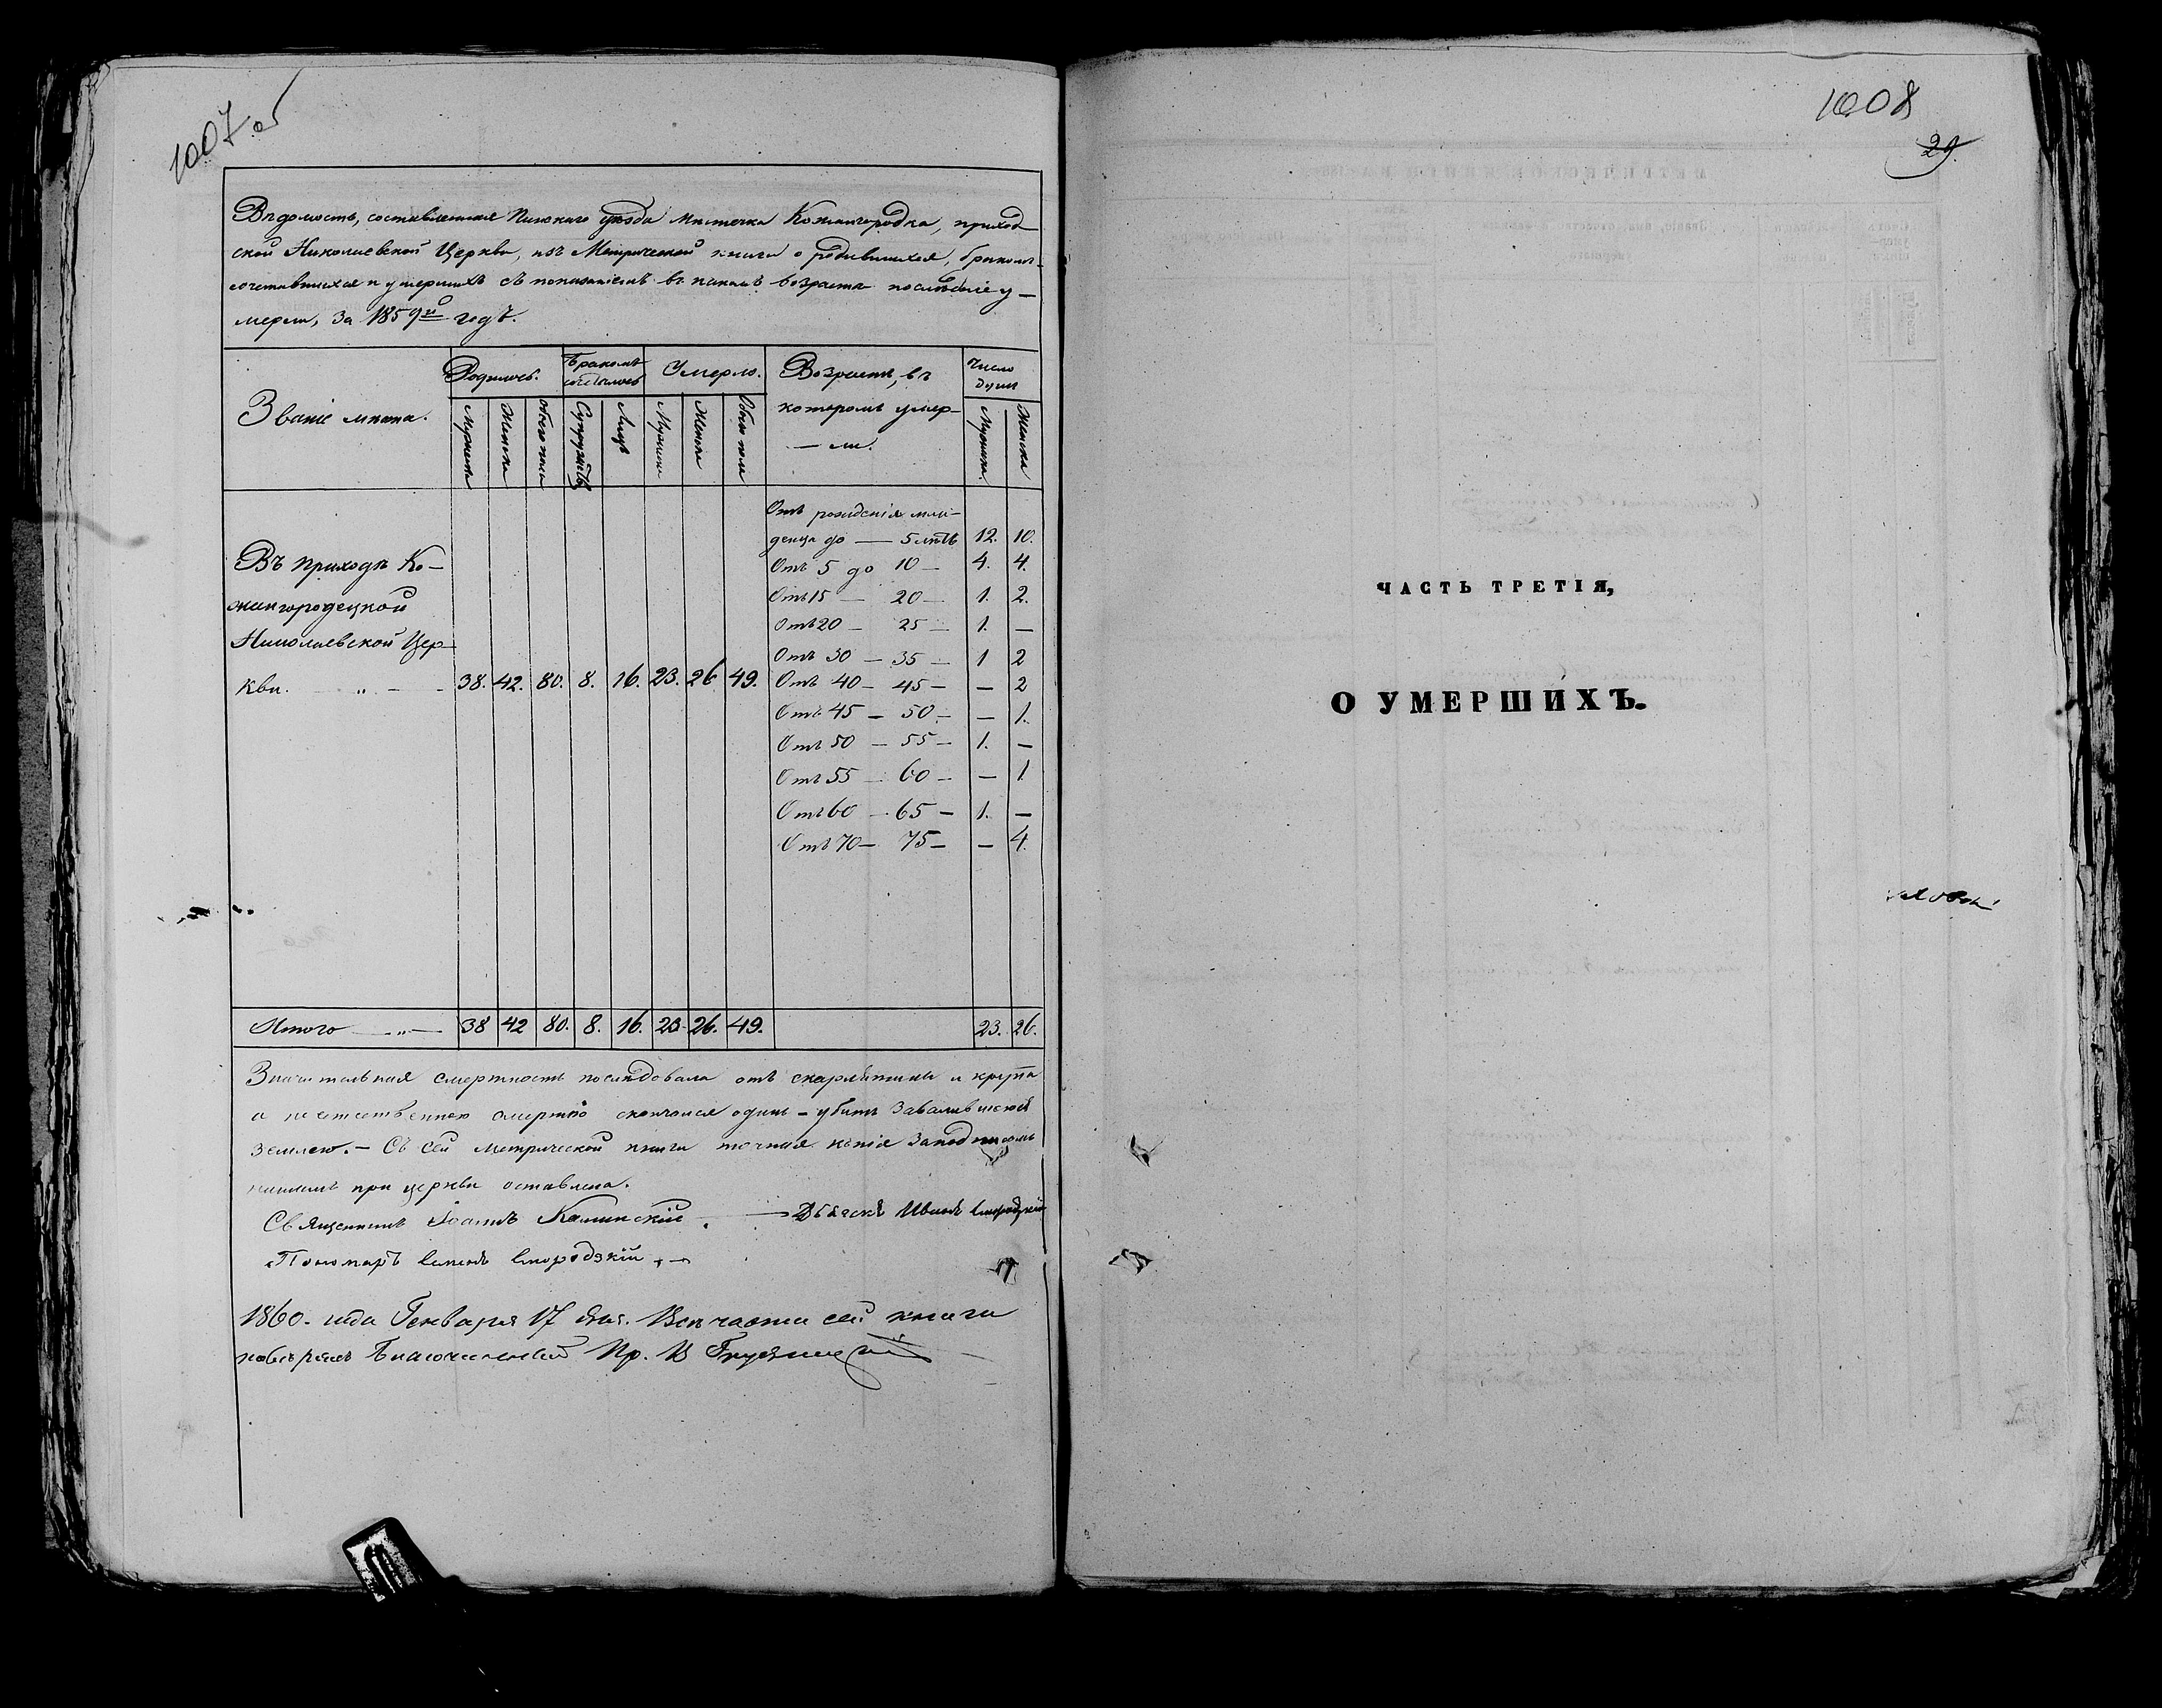 1007 об
Вѣдомость, составленная Пинскаго уѣзда мѣстечка Кожангородка, приход-
ской Николаевской Церкви, изъ Метрической книги о родившихся, бракомъ-
сочетавшихся и умершихъ съ показаніемъ въ какомъ возрастѣ послѣдніе у-
мерли, за 1859й годъ.
Званіе мѣста.
Родилось.
Бракомъ
сочеталось
Умерло.
Возрастъ, въ
которомъ умер-
— ли.
Число
душъ
Мужска
Женска
Обоего пола
Супружествъ
Лицъ
Мужска
Женска
Обоего пола
Мужска.
Женска
Въ приходѣ Ко-
жангородецкой
Николаевской Цер-
кви. — „ — — 38. 42. 80. 8. 16. 23. 26 49.
Отъ рожденія мла-
денца до — 5 лѣтъ 12. 10.
Отъ 5 до 10 — 4. 4.
Отъ 15 — 20 — 1. 2.
Отъ 20 — 25 — 1. —
Отъ 30 — 35 — 1 2
Отъ 40 — 45 — — 2
Отъ 45 — 50 — — 1.
Отъ 50 — 55 — 1. —
Отъ 55 — 60 — — 1
Отъ 60 — 65 — 1. —
Отъ 70 — 75 — — 4.
Итого — „ — 38 42 80. 8. 16. 23 26. 49. 23. 26.
Значительная смертность послѣдовала отъ скарлятины и крупа
а неестественною смертію скончался одинъ – убитъ завалившеюся
землею. – Съ сей метрической книги точная копія за подписомъ
нашимъ при церкви оставлена.
Священникъ Іоаннъ Калинскій. — Дьячекъ Иванъ
Пономарь Семенъ Смородзкій
1860. года Генваря 17 дня. Всѣ части сей книги
повѣрялъ Благочинный Пр. В
1008
29.
ЧАСТЬ ТРЕТІЯ,
О УМЕРШИХЪ.